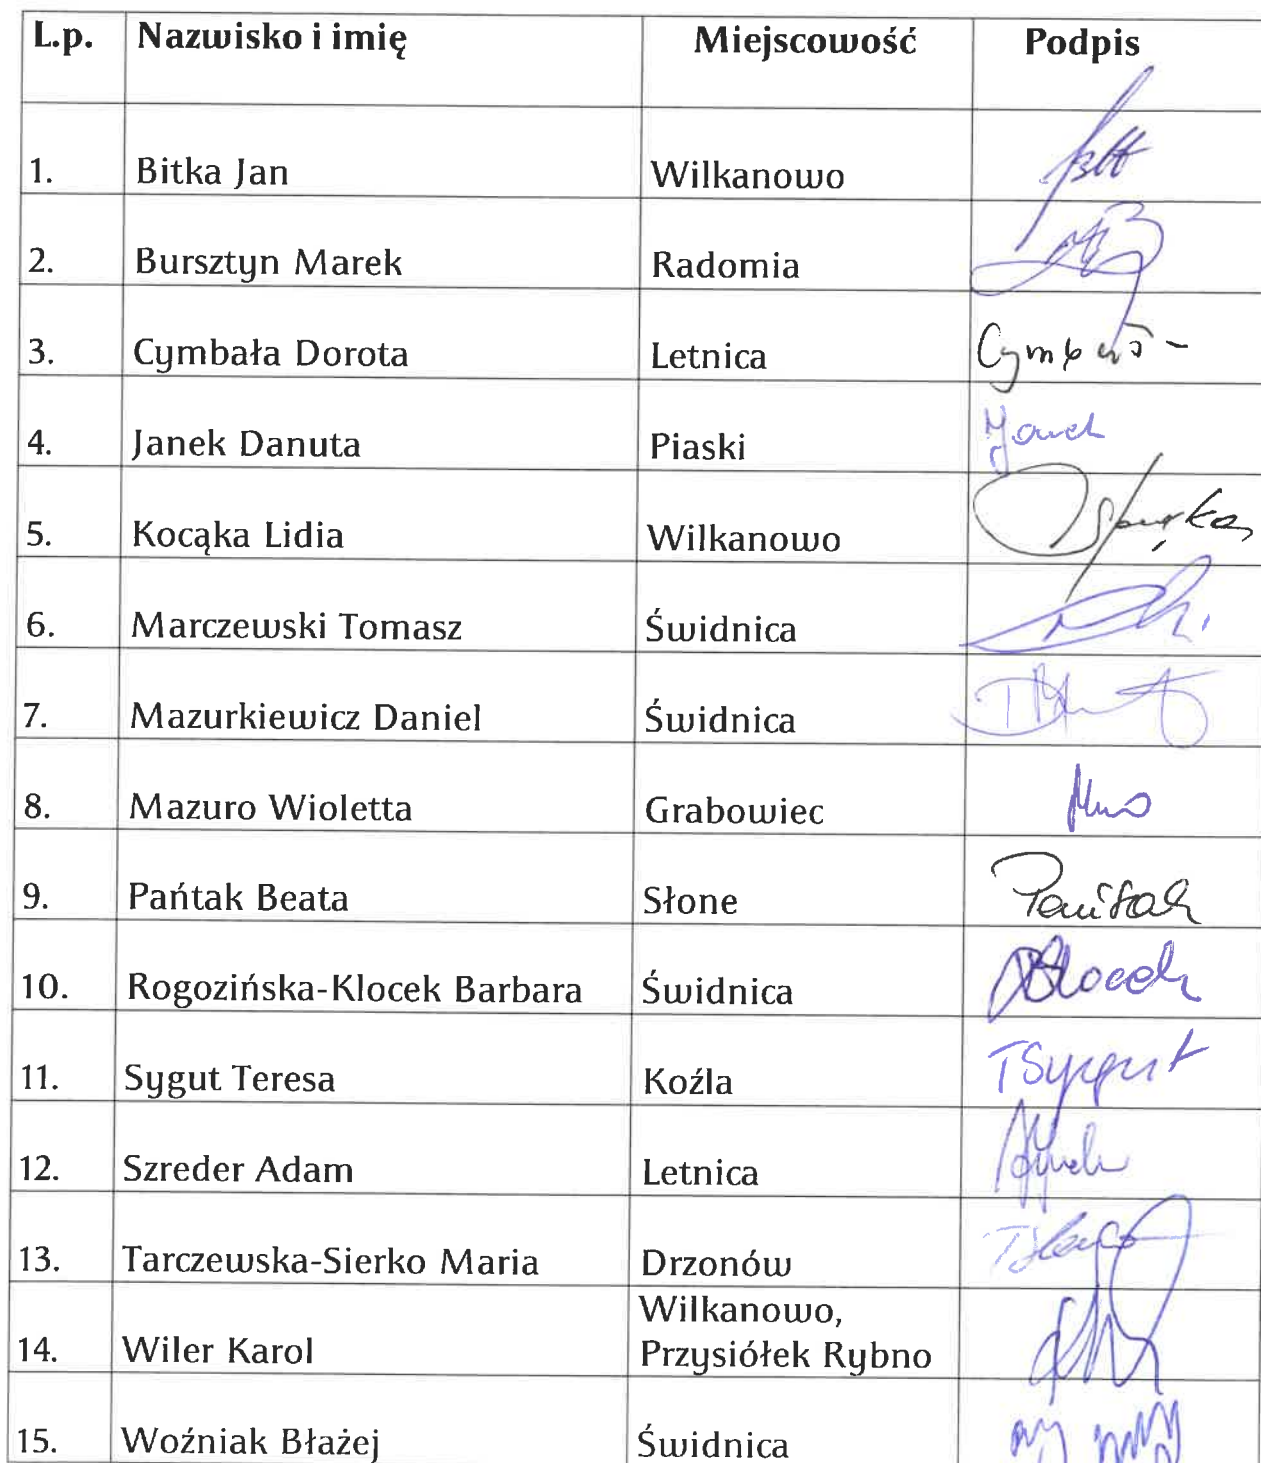 L.p. Nazwisko i imię Miejscowość Podpis
1. Bitka Jan Wilkanowo
2. Bursztyn Marek Radomia
3. Cymbała Dorota Letnica
4. Janek Danuta Piaski
5. Kocąka Lidia Wilkanowo
6. Marczewski Tomasz Świdnica
7. Mazurkiewicz Daniel Świdnica
8. Mazuro Wioletta Grabowiec
9. Pańtak Beata Słone Pańtak
10. Rogozińska-Klocek Barbara Świdnica
11. Sygut Teresa Koźla TSygut
12. Szreder Adam Letnica
13. Tarczewska-Sierko Maria Drzonów
Wilkanowo,
14. Wiler Karol Przysiółek Rybno
15. Woźniak Błażej Świdnica